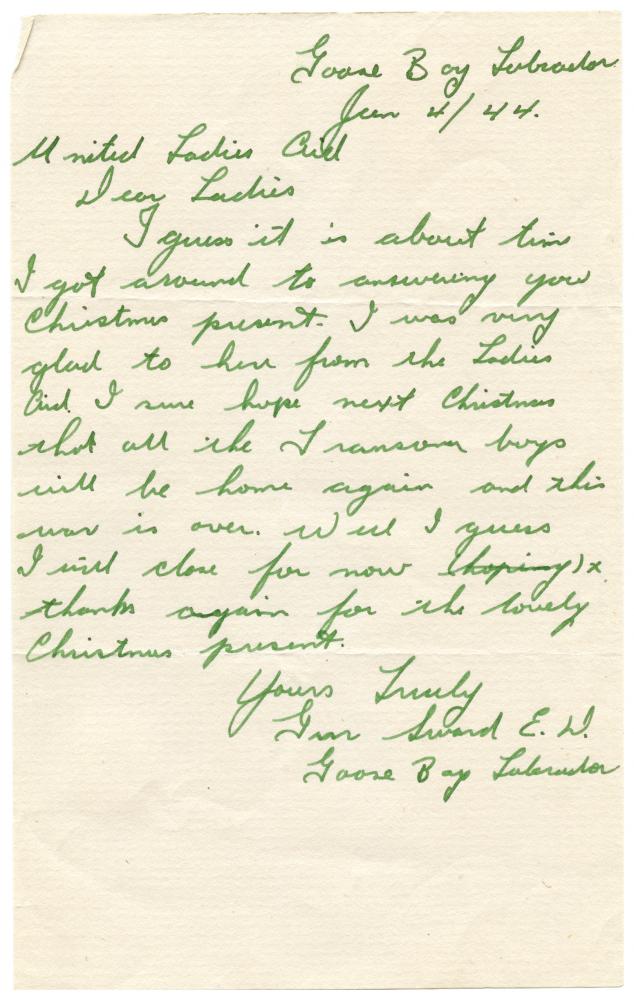 Goose Bay Labrador
Jan 4/44.
United Ladies Aid
Dear Ladies
I guess it is about time
I got around to answering your
Christmas present. I was very
glad to hear from the Ladies
Aid. I sure hope next Christmas
that all the Transcona boys
will be home again and this
war is over. Well I guess
I will close for now (hoping) x
thanks again for the lovely
Christmas present.
Yours Truly
Gnr Sward E. D.
Goose Bay Labrador